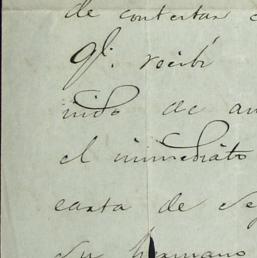 de contestar
q.e recibí
nido de an
el inmediato
carta de Se
su hermano